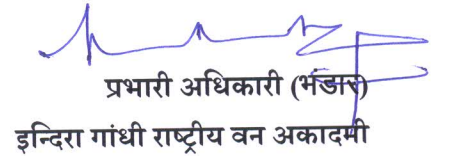 प्रभारी अधिकारी (भंडार)
इन्दिरा गांधी राष्ट्रीय वन अकादमी